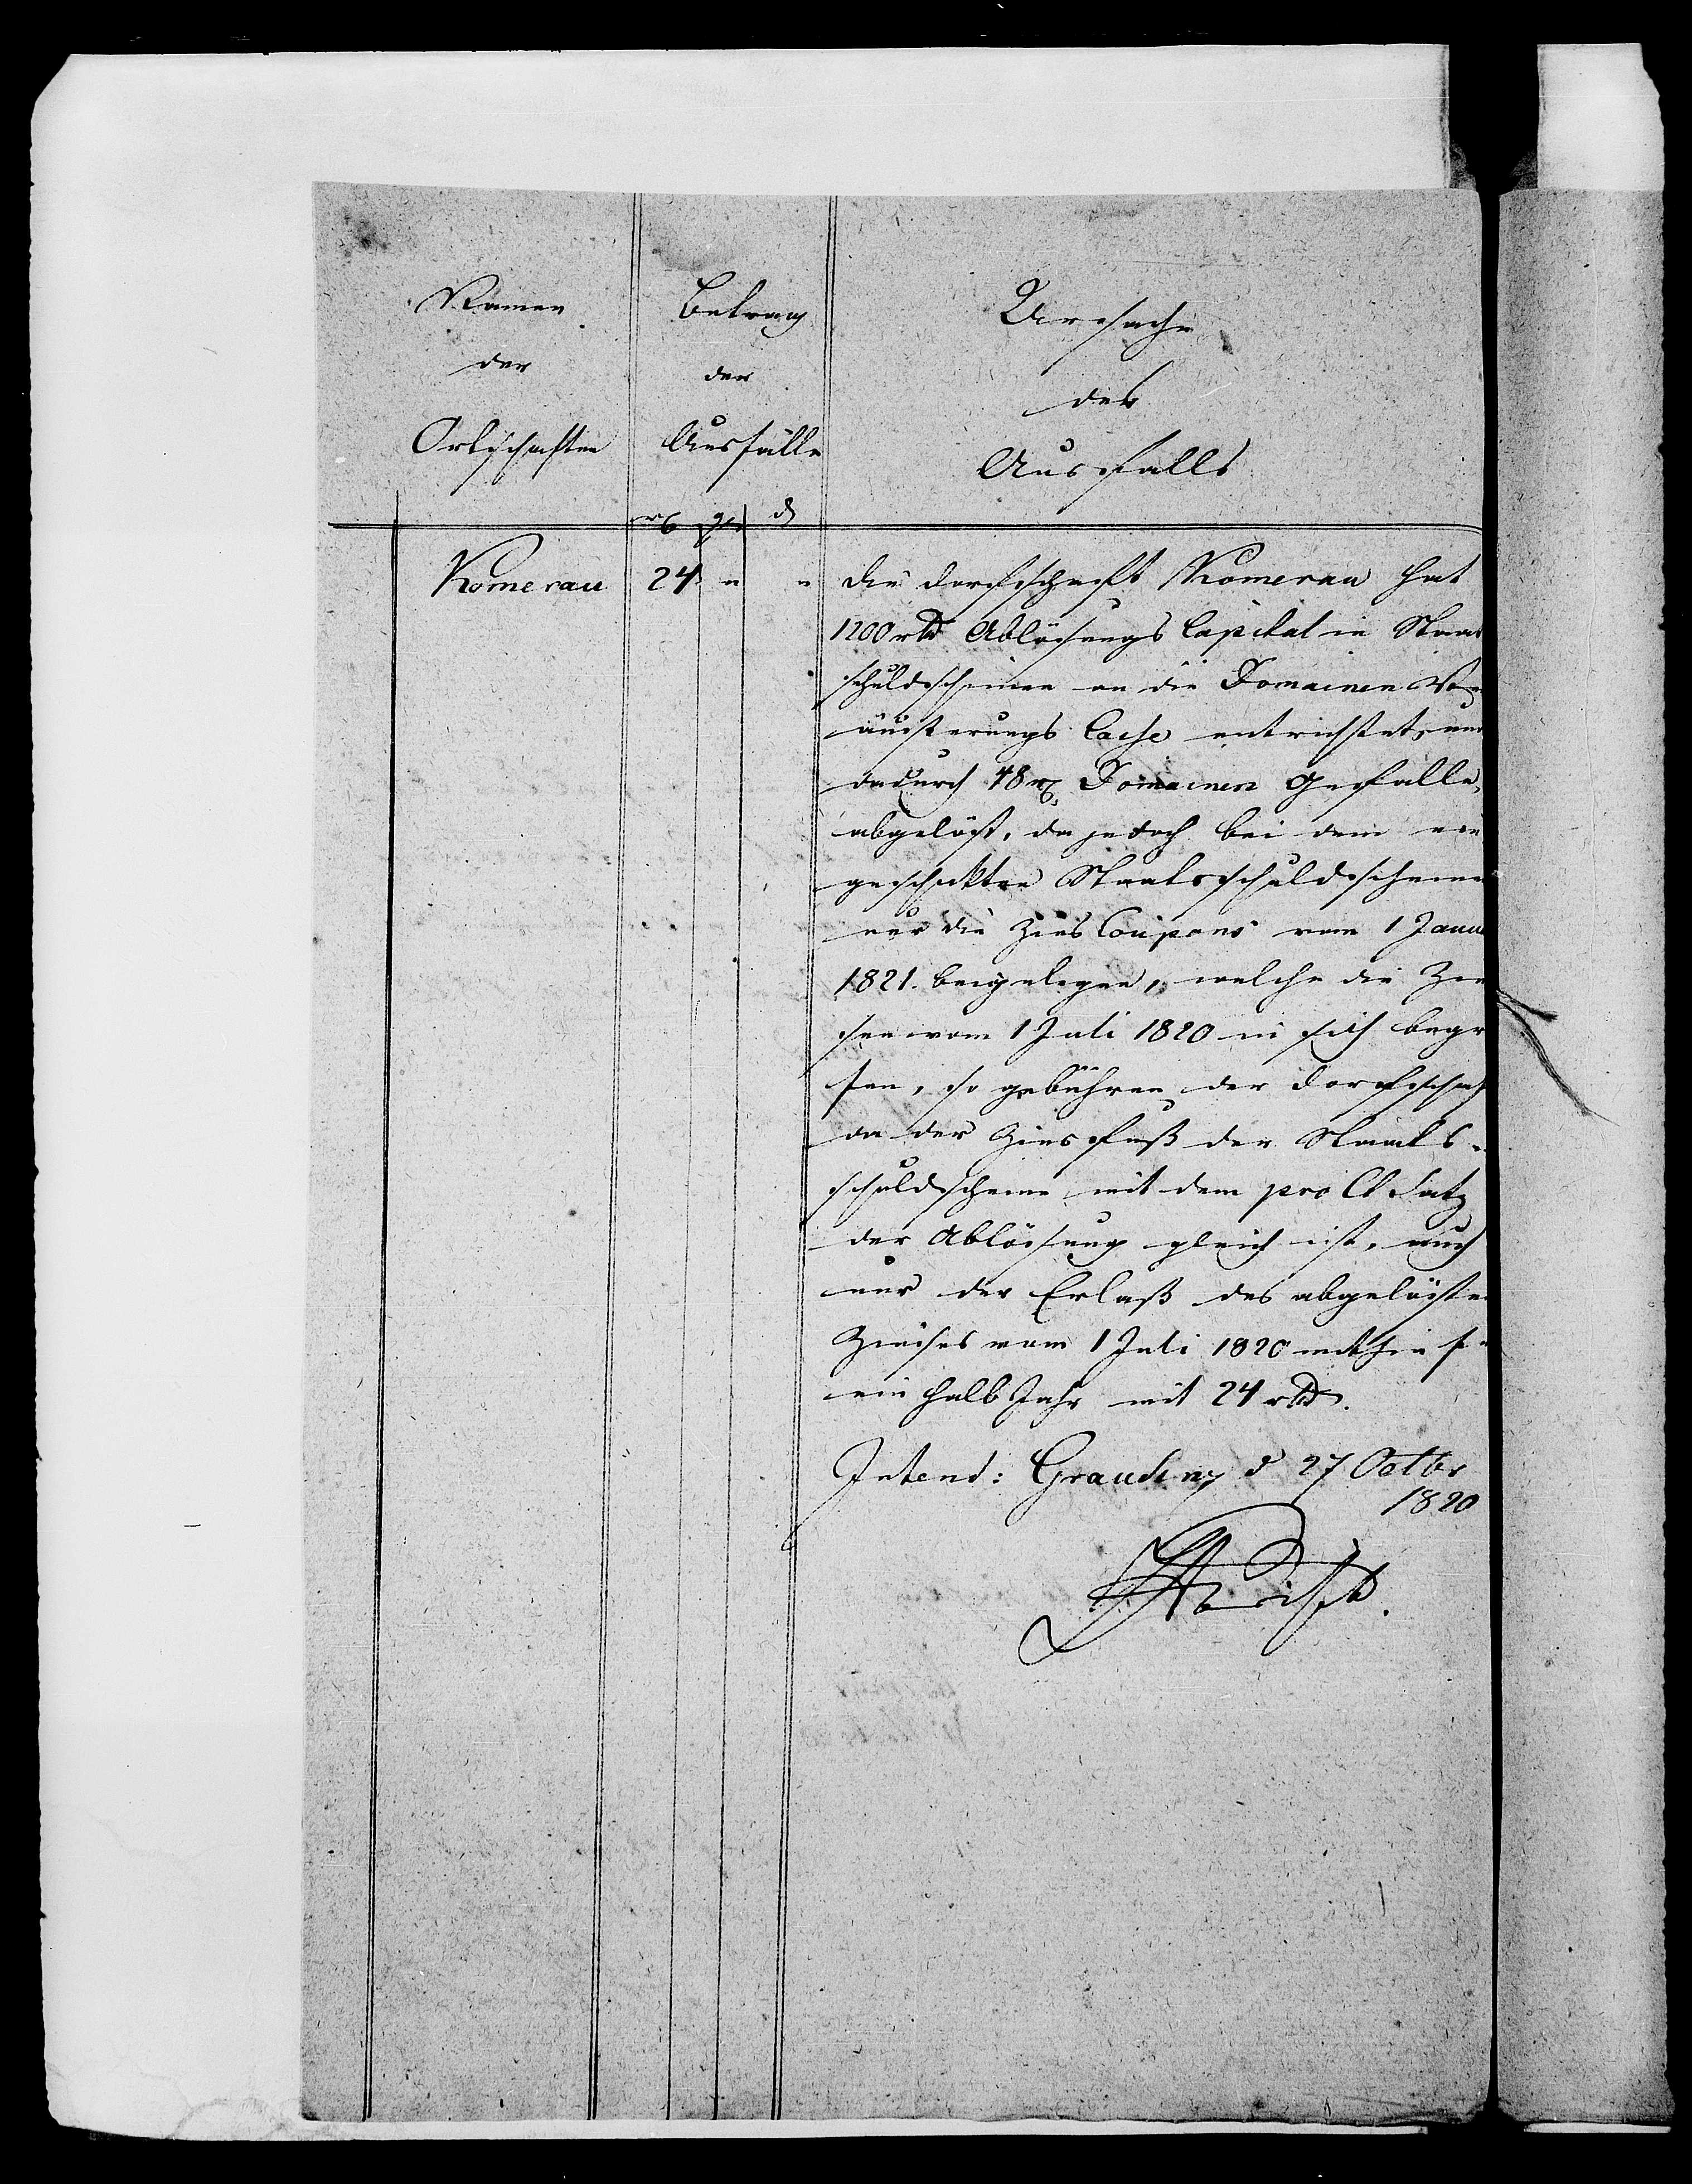 Namen
der
Ortschaften
Betrag
der
Ausfälle
Ursache
des
Ausfalls
rtl gr d
Komerau 24 " "
die Dorfschaft Komerau hat
1200 rtl Ablösungs Capital in Staats
schuldscheinen an die Domainen Ver
äußerungs Casse entrichtet, und
dadurch 48 rtl Domainen Gefälle
abgelöst, da jedoch bei dem ein
geschickten Staatsschuldscheinen
nur die Zins Coupons vom 1 Janua
1821. beigelegen, welche die Zin
sen vom 1 Juli 1820 in sich begr
fen, so gebühren der Dorfschaf
da der Zinsfuß der Staats-
schuldscheine mit dem pro Ct Satz
der Ablösung gleich ist, auch
nur der Erlaß des abgelösten
Zinses vom 1 Juli 1820 mithin f
ein halb Jahr mit 24 rtl.
Intend: Graudenz d 27 Octbr
1820